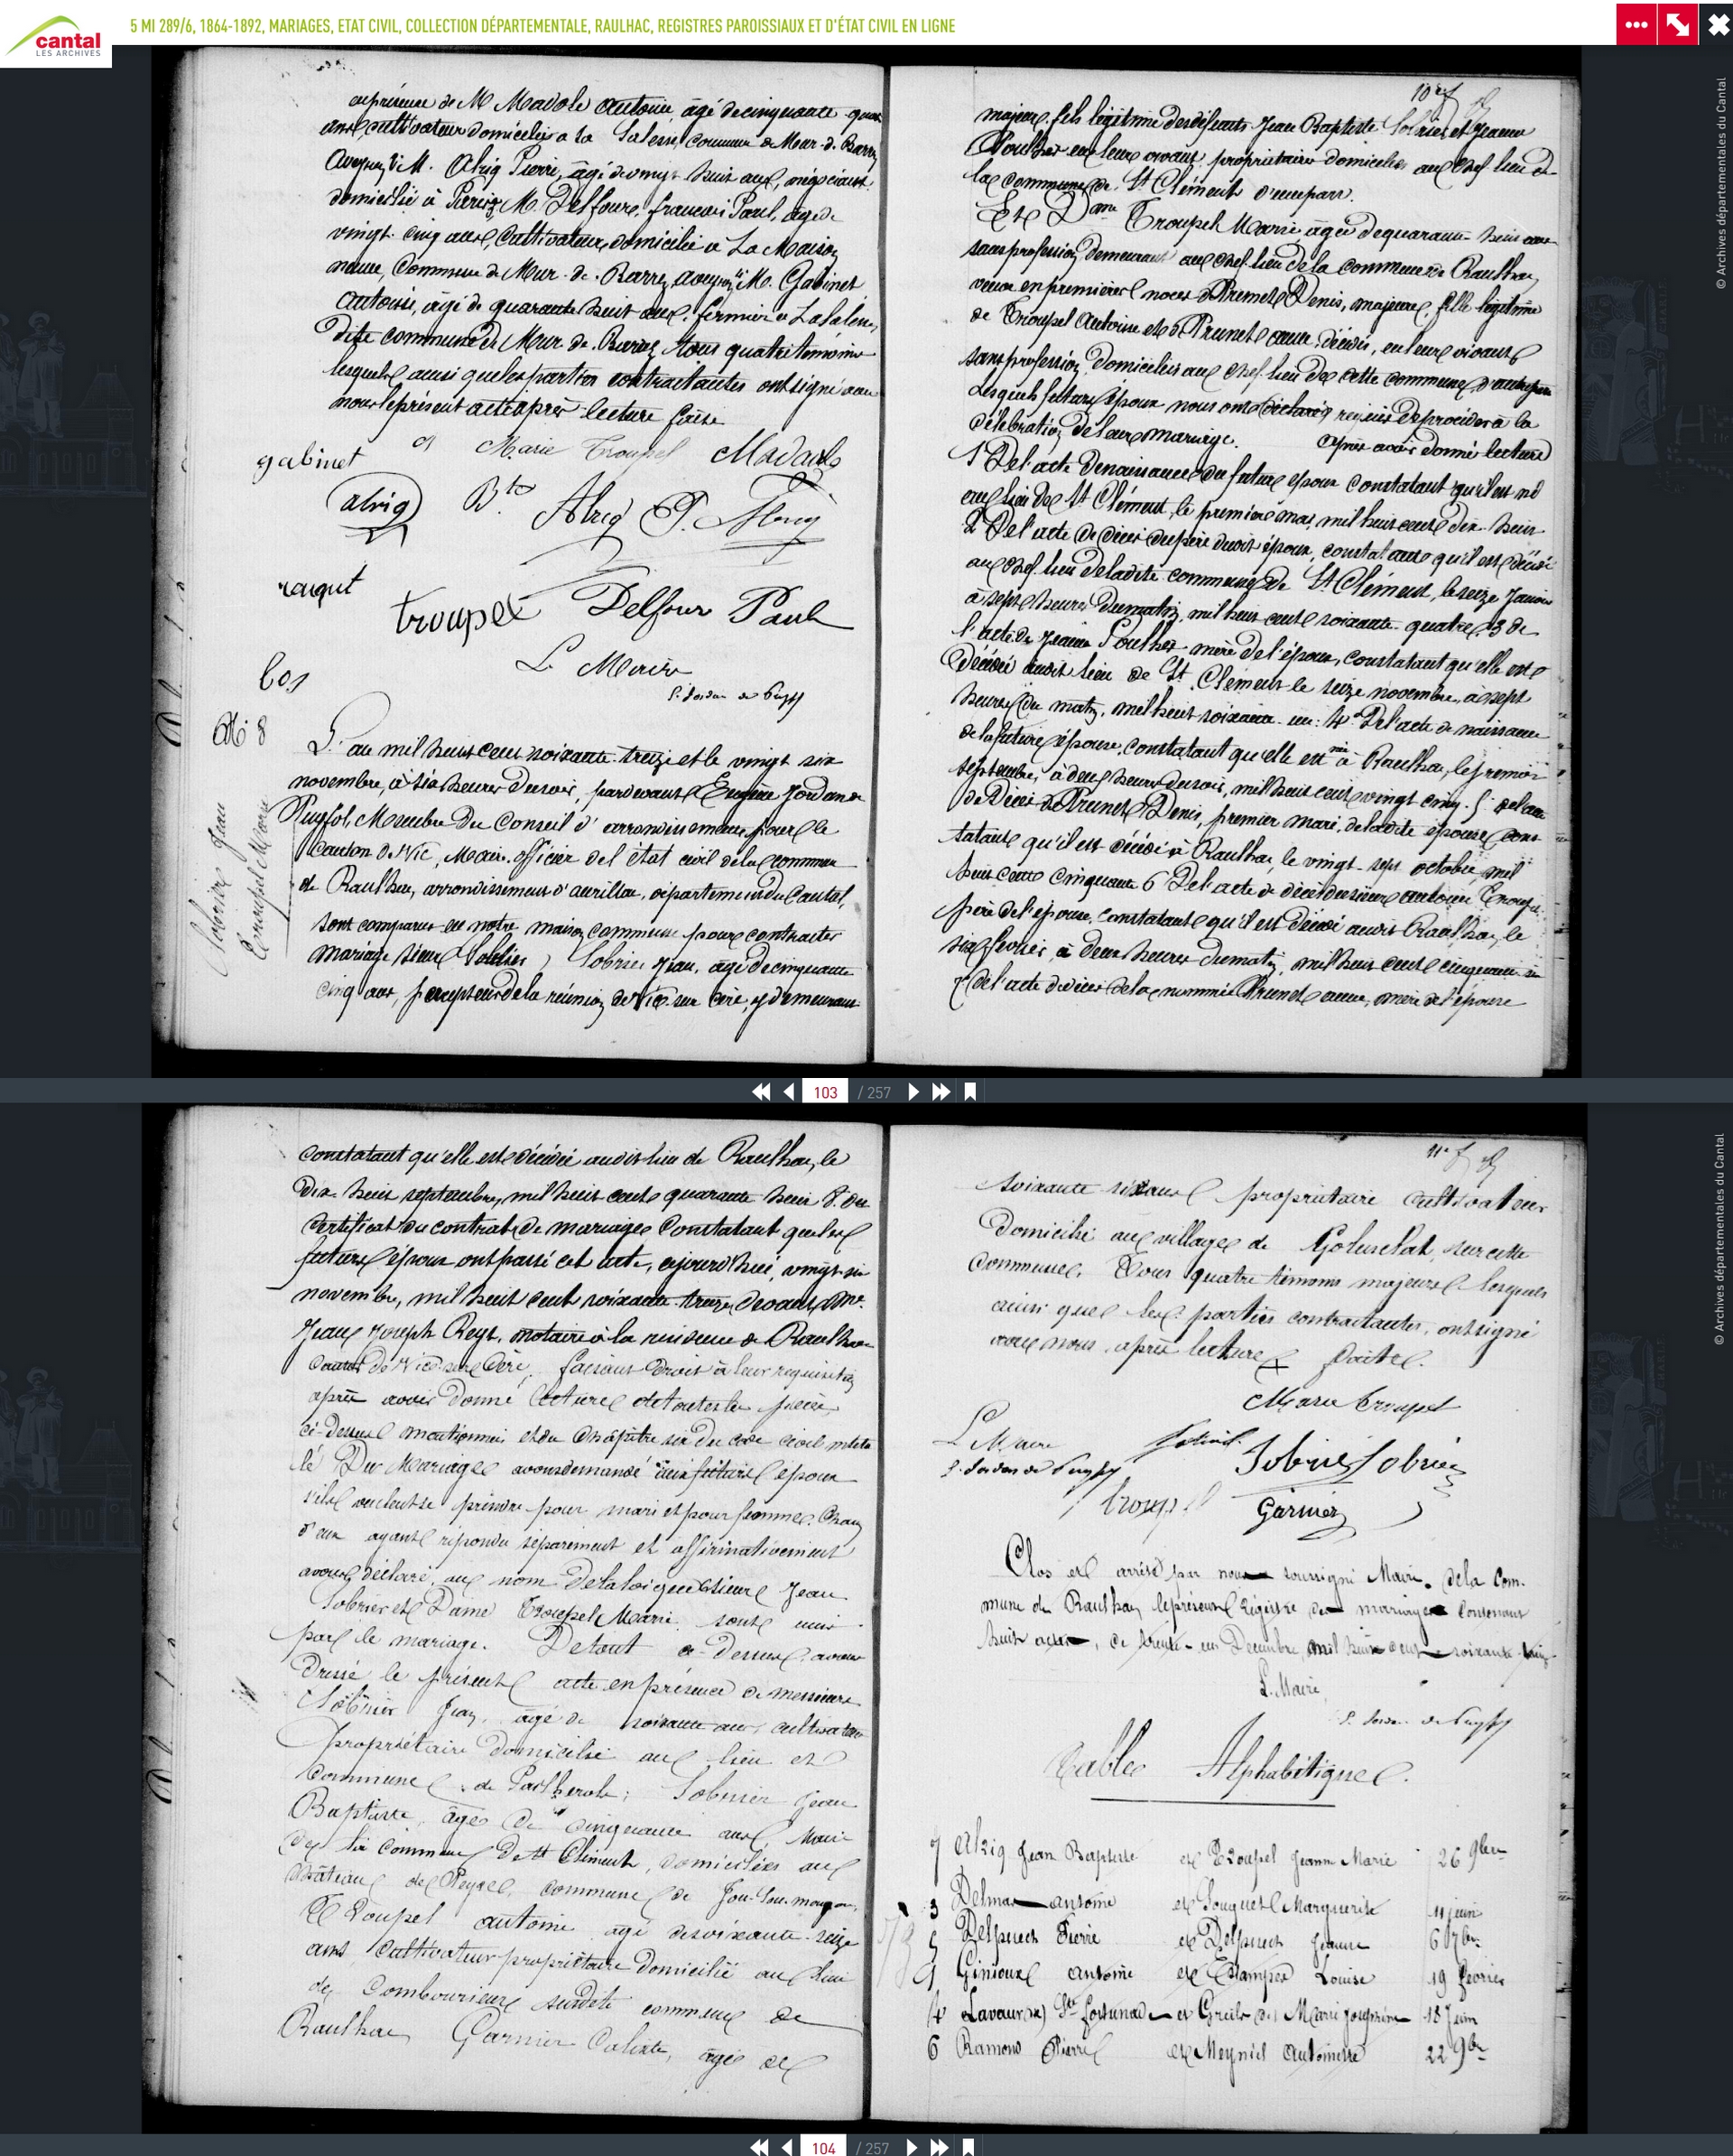 cantal
LES ARCHIVES
5 MI 289/6, 1864-1892, MARIAGES, ETAT CIVIL, COLLECTION DÉPARTEMENTALE, RAULHAC, REGISTRES PAROISSIAUX ET D'ÉTAT CIVIL EN LIGNE
© Archives départementales du Cantal
en présence de M Madole Antoine, âgé de cinquante quatre
ans, cultivateur domicilié à la Salesse, commune de Mur-de-Barrez
Aveyron; M. Alriq Pierre, âgé de vingt huit ans, négociant
domicilié à M. Delfour françois Paul, âgé de
vingt cinq ans, cultivateur, domicilié à La Maison
neuve, Commune de Mur-de-Barrez, aveyron; M. Gabinet
Antoine, âgé de quarante huit ans, fermier à La Salesse,
dite commune de Mur-de-Barrez, tous quatre témoins
lesquels ainsi que les parties contractantes ont signé avec
nous le présent acte après lecture faite
gabinet Marie Troupel Madole
alriq Bte Alriq P. Alriq
raigut
troupel Delfour Paul
Le Maire
E. Jordan de Puyfol
bos
No 8
Sobrier Jean
Troupel Marie
L'an mil huit cent soixante-treize et le vingt six
novembre, à six heures du soir, pardevant Eugène Jordan de
Puyfol, Membre du Conseil d'arrondissement pour le
Canton de Vic, Maire, officier de l'état civil de la commune
de Raulhac, arrondissement d'aurillac, département du Cantal,
sont comparus en notre maison commune pour contracter
mariage sieur Sobrier Jean, âgé de cinquante
cinq ans, percepteur de la réunion de Vic-sur-Cère, y demeurant
10e f
majeur, fils légitime des défunts Jean Baptiste Sobrier et Jeanne
Soulher en leur vivant, propriétaires domiciliés au chef-lieu de
la commune de St Clément d'une part.
Et Dame Troupel Marie âgée de quarante-huit ans
sans profession, demeurant au chef-lieu de la commune de Raulhac,
veuve en premières noces de Prunet Denis, majeure, fille légitime
de Troupel Antoine et de Prunet anne, décédés, en leur vivant
sans profession, domiciliés au chef-lieu de cette commune, d'autre part
Lesquels futurs époux nous ont requis de procéder à la
célébration de leur mariage. Après avoir donné lecture
1° De l'acte de naissance du futur époux constatant qu'il est né
au lieu de St Clément, le premier mai, mil huit cent dix-huit
2° De l'acte de décès du père dudit époux, constatant qu'il est décédé
au chef-lieu de ladite commune de St Clément, le seize Janvier
à sept heures du matin, mil huit cent soixante-quatre, 3° de
l'acte de Jeanne Soulher mère de l'époux, constatant qu'elle est
décédée audit lieu de St Clément le seize novembre, à sept
heures du matin, mil huit soixante-un: 4° De l'acte de naissance
de la future épouse, constatant qu'elle est née à Raulhac, le premier
septembre, à deux heures du soir, mil huit cent vingt cinq. 5° de l'acte
de Décès de Prunet Denis, premier mari, de ladite épouse, cons
tatant qu'il est décédé à Raulhac, le vingt-sept octobre, mil
huit cent cinquante 6° De l'acte de décès du sieur antoine Troupel
père de l'épouse, constatant qu'il est décédé audit Raulhac, le
six février, à deux heures du matin, mil huit cent cinquante six
7° de l'acte de décès de la nommée Prunet anne, mère de l'épouse
103 / 257
constatant qu'elle est décédée audit lieu de Raulhac, le
Dix-huit septembre, mil huit cent quarante huit 8° du
certificat du contrat de mariage Constatant que les
futurs époux ont passé cet acte, ajourd'hui, vingt-six
novembre, mil huit cent soixante-treize, devant Me
Jean Joseph Reyt, notaire à la résidence de Raulhac
canton de Vic-sur-Cère, faisant Droit à leur réquisition
après avoir donné lecture de toutes les pièces
ci-Dessus mentionnées et du Chapitre six du code civil intitu
lé Du Mariage avons demandé aux futurs époux
s'ils veulent se prendre pour mari et pour femme. Chacun
d'eux ayant répondu séparément et affirmativement
avons déclaré, au nom de la loi que sieur Jean
Sobrier et Dame Troupel Marie, sont unis
par le mariage. De tout ci-Dessus, avons
Dressé le présent acte en présence de messieurs
Sobrier Jean, âgé de soixante ans, cultivateur
propriétaire domicilié au lieu et
Commune de Pailherols; Sobrier Jean
Baptiste, âgé de cinquante ans, Maire
de la commune de St Clément, domicilié au
château de Peyre, commune de Jou-Sou-monjou,
Troupel antoine agé de soixante-seize
ans cultivateur-propriétaire domicilié au lieu
de Combourieux susdite commune de
Raulhac Garnier Calixte, âgé de
11e f
soixante six ans propriétaire cultivateur
domicilié au village de Goluselat, sur cette
commune. Tous quatre témoins majeurs lesquels
ainsi que les parties contractantes, ont signé
avec nous, après lecture faite.
Marie troupel
Le Maire
E. Jordan de Puyfol Sobrier Sobrier
troupel Garnier
Clos et arrêté par nous soussigné Maire de la Com-
mune de Raulhac le présent Régistre des mariages Contenant
huit actes, ce trente-un Décembre mil huit cent soixante treize
Le Maire
E. Jordan de Puyfol
Table Alphabétique.
7 Alriq Jean Baptiste et Troupel Jeanne Marie 26 9bre
3 Delmas antoine et Fouquet Marguerite 11 juin
5 Delpuech Pierre et Delpuech Jeanne 6 7bre
1 Ginioux antoine et Estampes Louise 19 février
4 Lavaur (de) Ste Fortunade et Greils (de) Marie Joséphine 18 Juin
6 Ramond Pierre et Meyniel Antoinette 22 9bre
© Archives départementales du Cantal
104 / 257